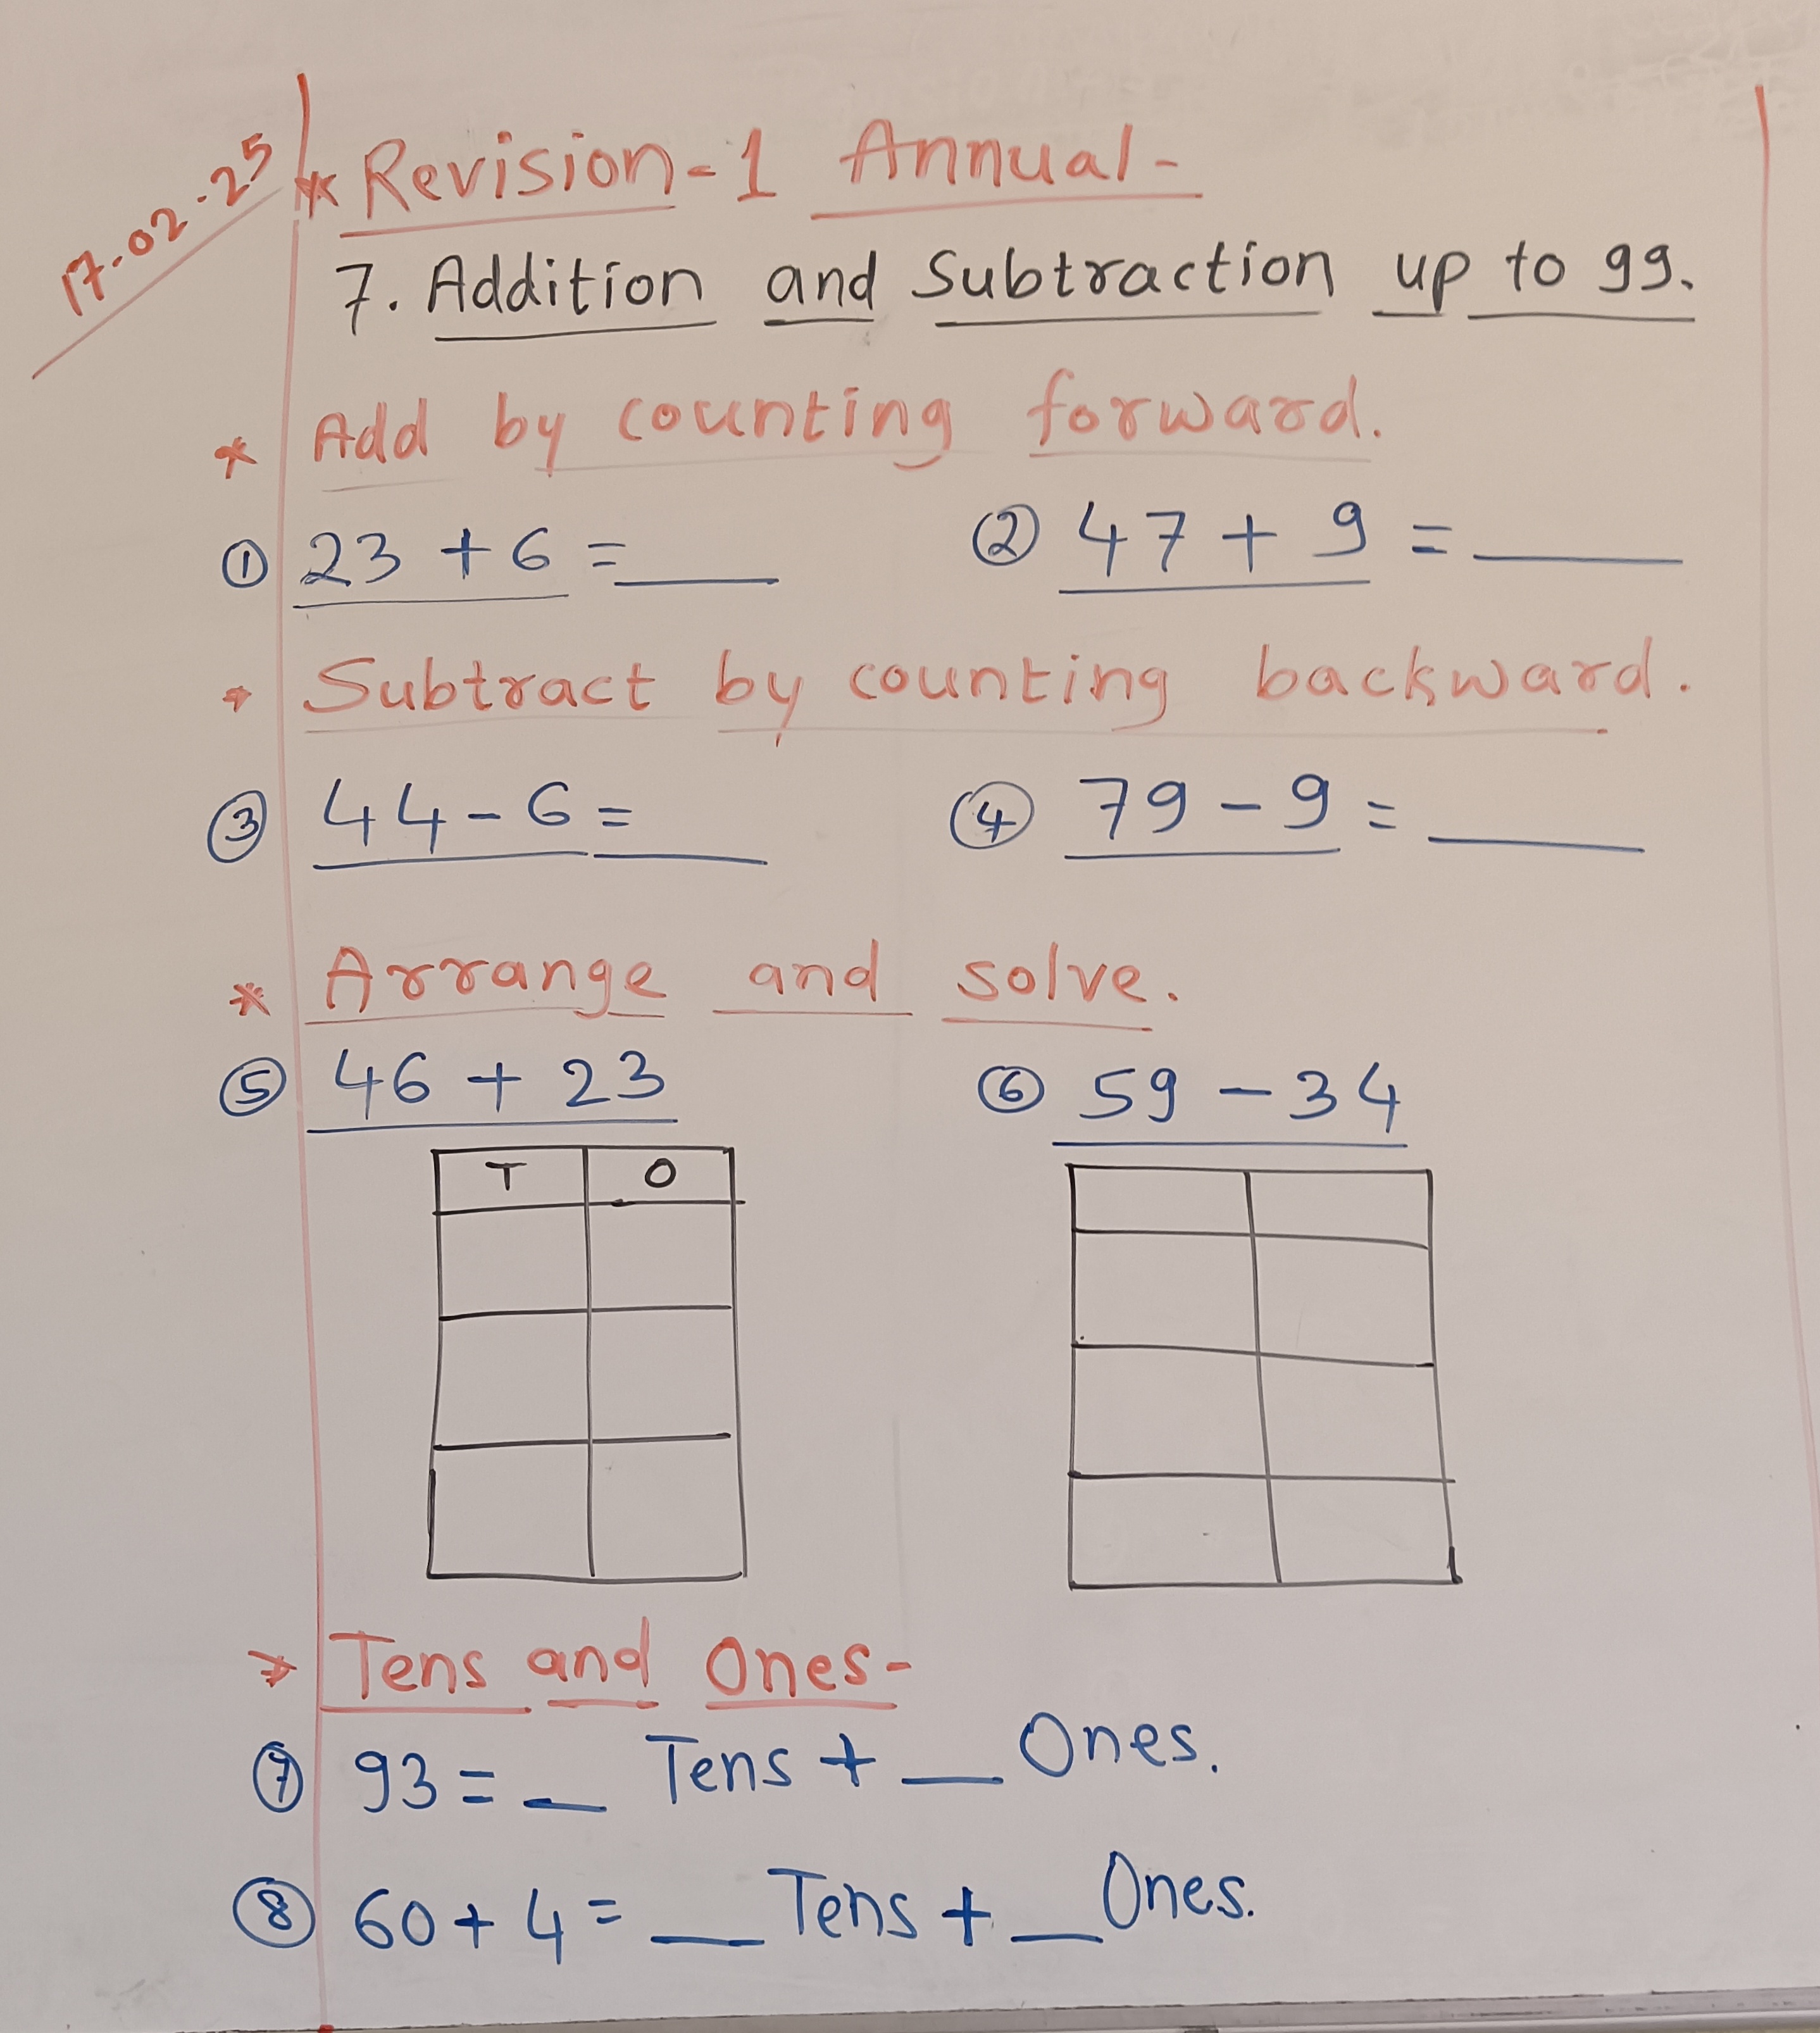 17.02.25
* Revision-1 Annual-
7. Addition and Subtraction up to 99.
* Add by counting forward.
① 23 + 6 = ___ ② 47 + 9 = ___
* Subtract by counting backward.
③ 44 - 6 = ___ ④ 79 - 9 = ___
* Arrange and solve.
⑤ 46 + 23 ⑥ 59 - 34
T O
* Tens and Ones-
⑦ 93 = __ Tens + __ Ones.
⑧ 60 + 4 = __ Tens + __ Ones.